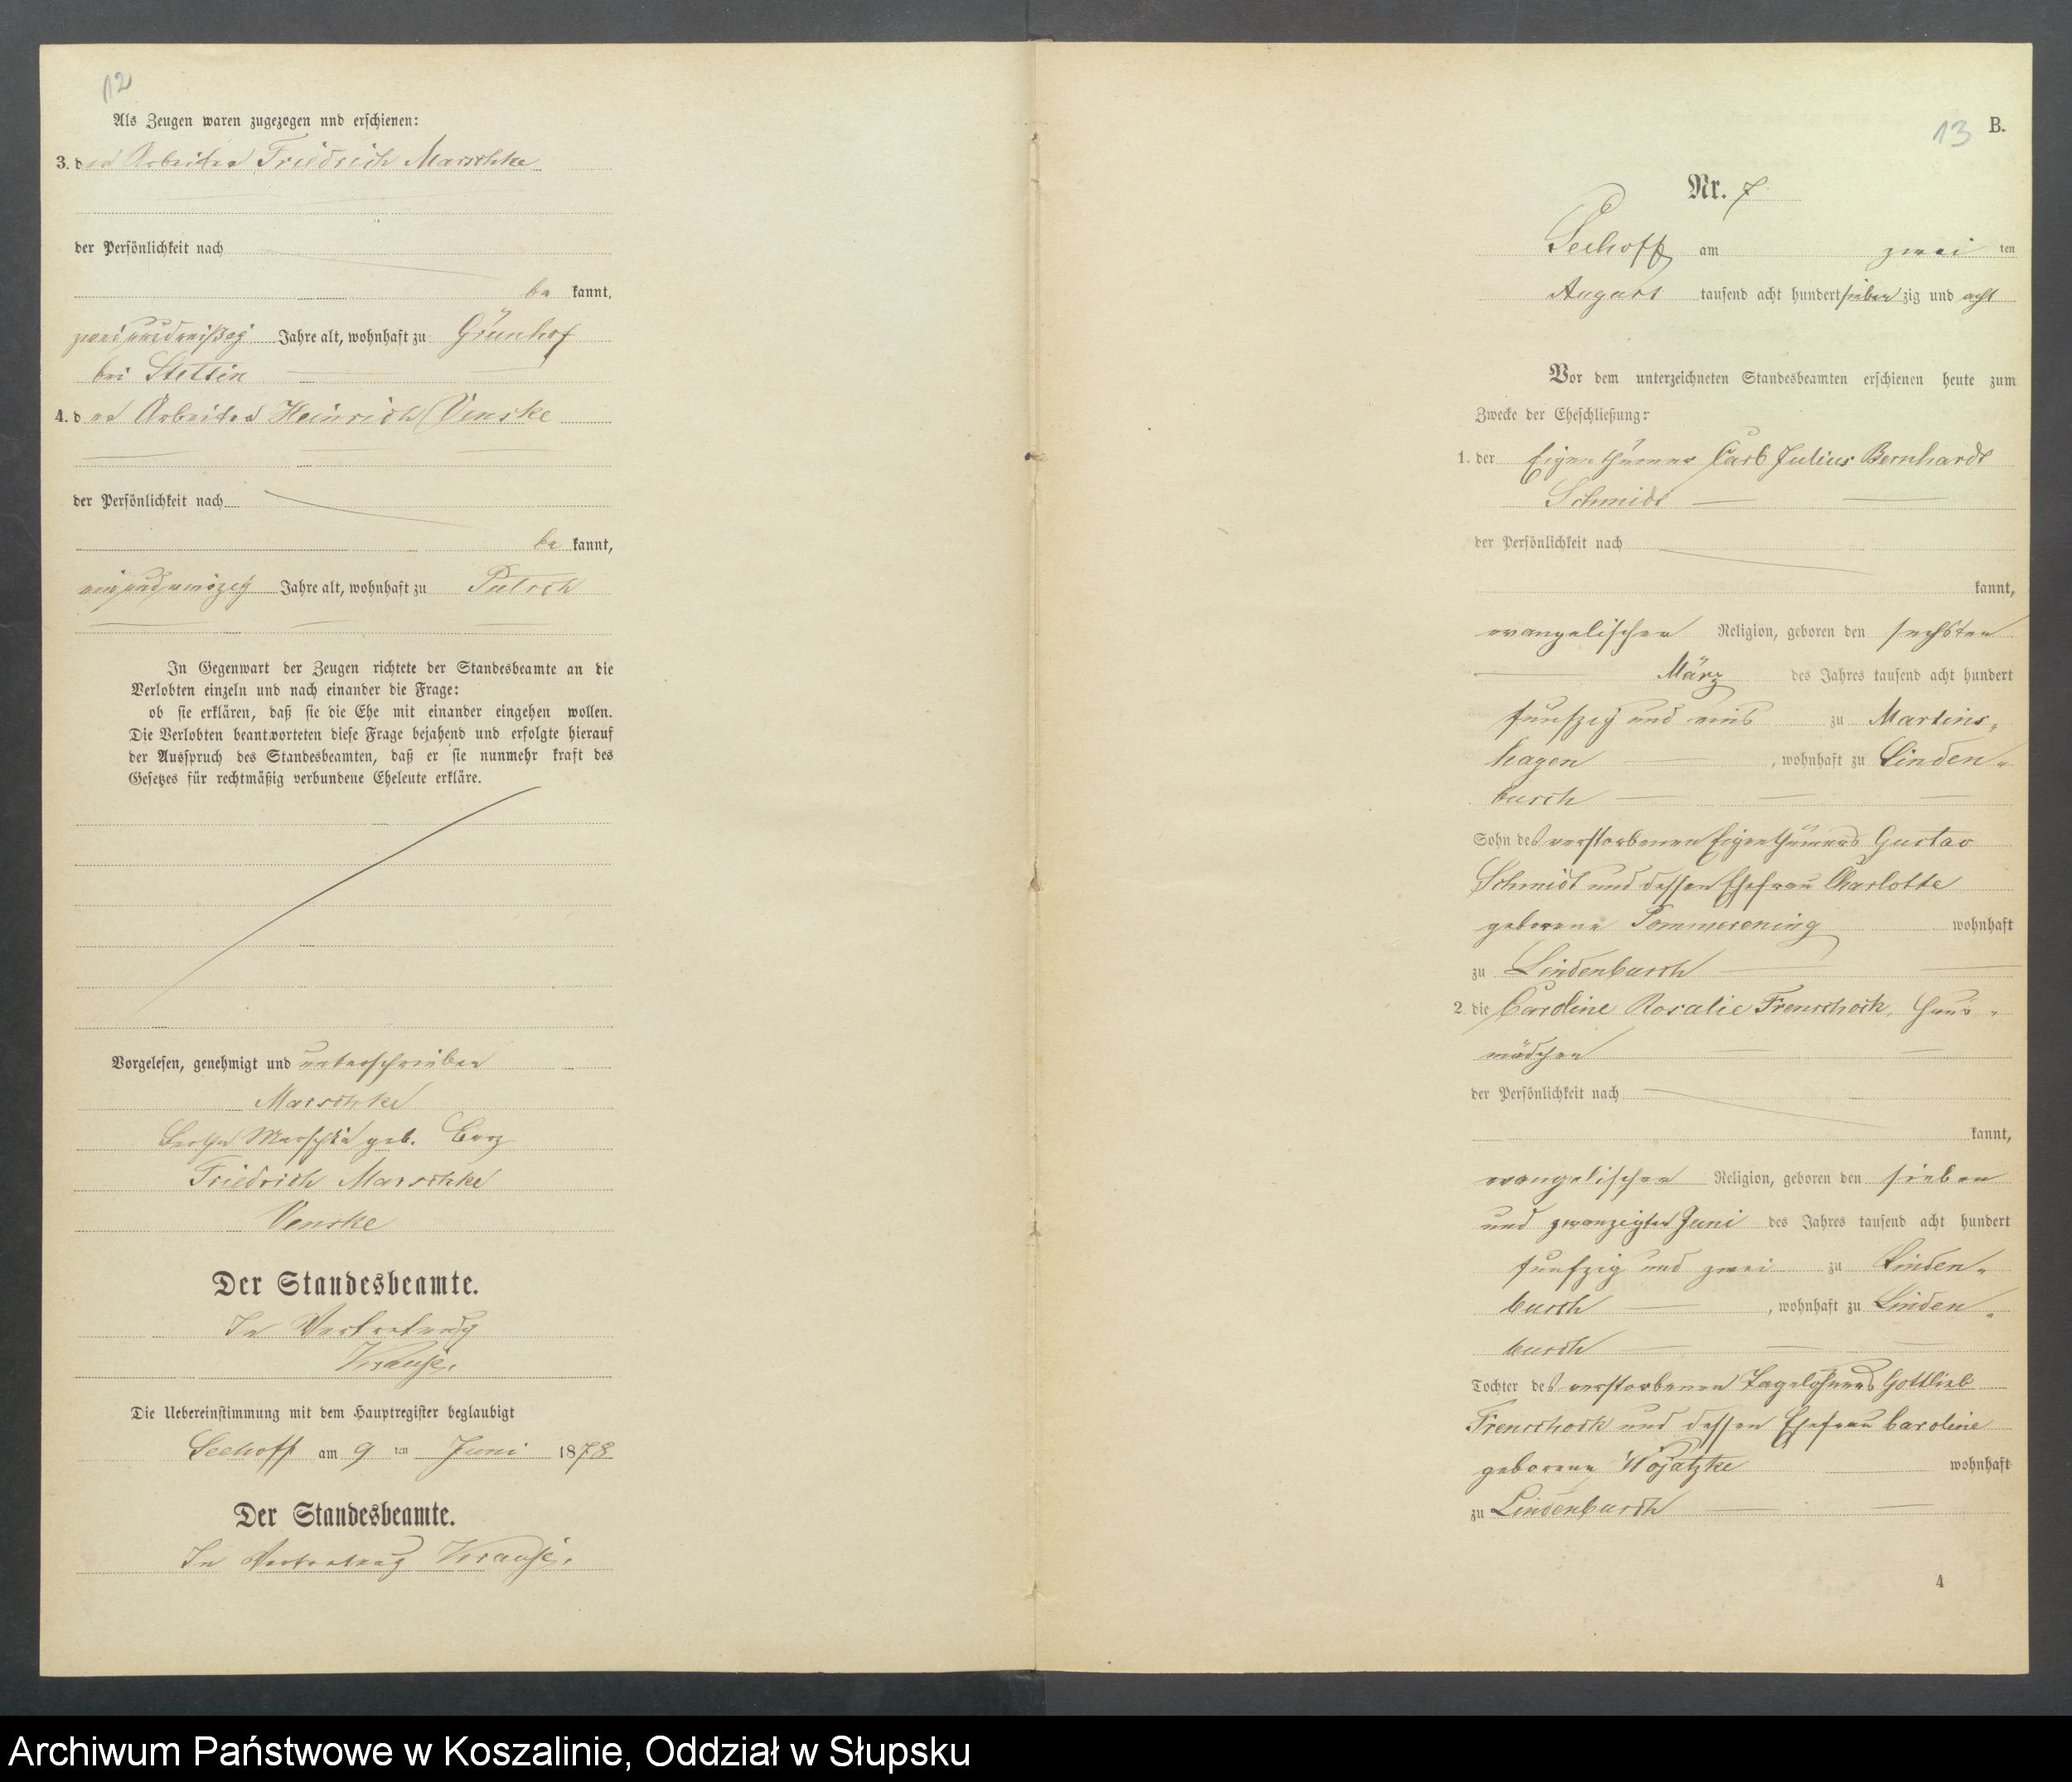 12
Als Zeugen waren zugezogen und erschienen:
3. der Arbeiter Friedrich Marschke
der Persönlichkeit nach
be kannt,
zweiunddreißig Jahre alt, wohnhaft zu Grünhof
bei Stettin
4. der Arbeiter Heinrich Venske
der Persönlichkeit nach
be kannt,
Jahre alt, wohnhaft zu
In Gegenwart der Zeugen richtete der Standesbeamte an die
Verlobten einzeln und nach einander die Frage:
ob sie erklären, daß sie die Ehe mit einander eingehen wollen.
Die Verlobten beantworteten diese Frage bejahend und erfolgte hierauf
der Ausspruch des Standesbeamten, daß er sie nunmehr kraft des
Gesetzes für rechtmäßig verbundene Eheleute erkläre.
Vorgelesen, genehmigt und unterschrieben
Marschke
Bertha Marschke geb.
Friedrich Marschke
Venske
Der Standesbeamte.
In Vertretung
Krause.
Die Uebereinstimmung mit dem Hauptregister beglaubigt
Seehoff am 9 ten Juni 1878
Der Standesbeamte.
In Vertretung Krause.
13 B.
Nr. 7
Seehoff am zwei ten
August tausend acht hundert sieben zig und acht
Vor dem unterzeichneten Standesbeamten erschienen heute zum
Zwecke der Eheschließung:
1. der Eigenthümer Carl Julius Bernhardt
Schmidt
der Persönlichkeit nach
kannt,
evangelischer Religion, geboren den sechsten
März des Jahres tausend acht hundert
funfzig und eins zu Martins-
hagen , wohnhaft zu Linden-
busch
Sohn des verstorbenen Eigenthümers Gustav
Schmidt und dessen Ehefrau Charlotte
geborene Pommerening wohnhaft
zu Lindenbusch
2. die Caroline Rosalie Frenschock, Haus-
mädchen
der Persönlichkeit nach
kannt,
evangelischer Religion, geboren den sieben
und zwanzigten Juni des Jahres tausend acht hundert
funfzig und zwei zu Linden-
busch , wohnhaft zu Linden-
busch
Tochter des verstorbenen Tagelöhners Gottlieb
Frenschock und dessen Ehefrau Caroline
geborene Wojatzke wohnhaft
zu Lindenbusch
4
Archiwum Państwowe w Koszalinie, Oddział w Słupsku